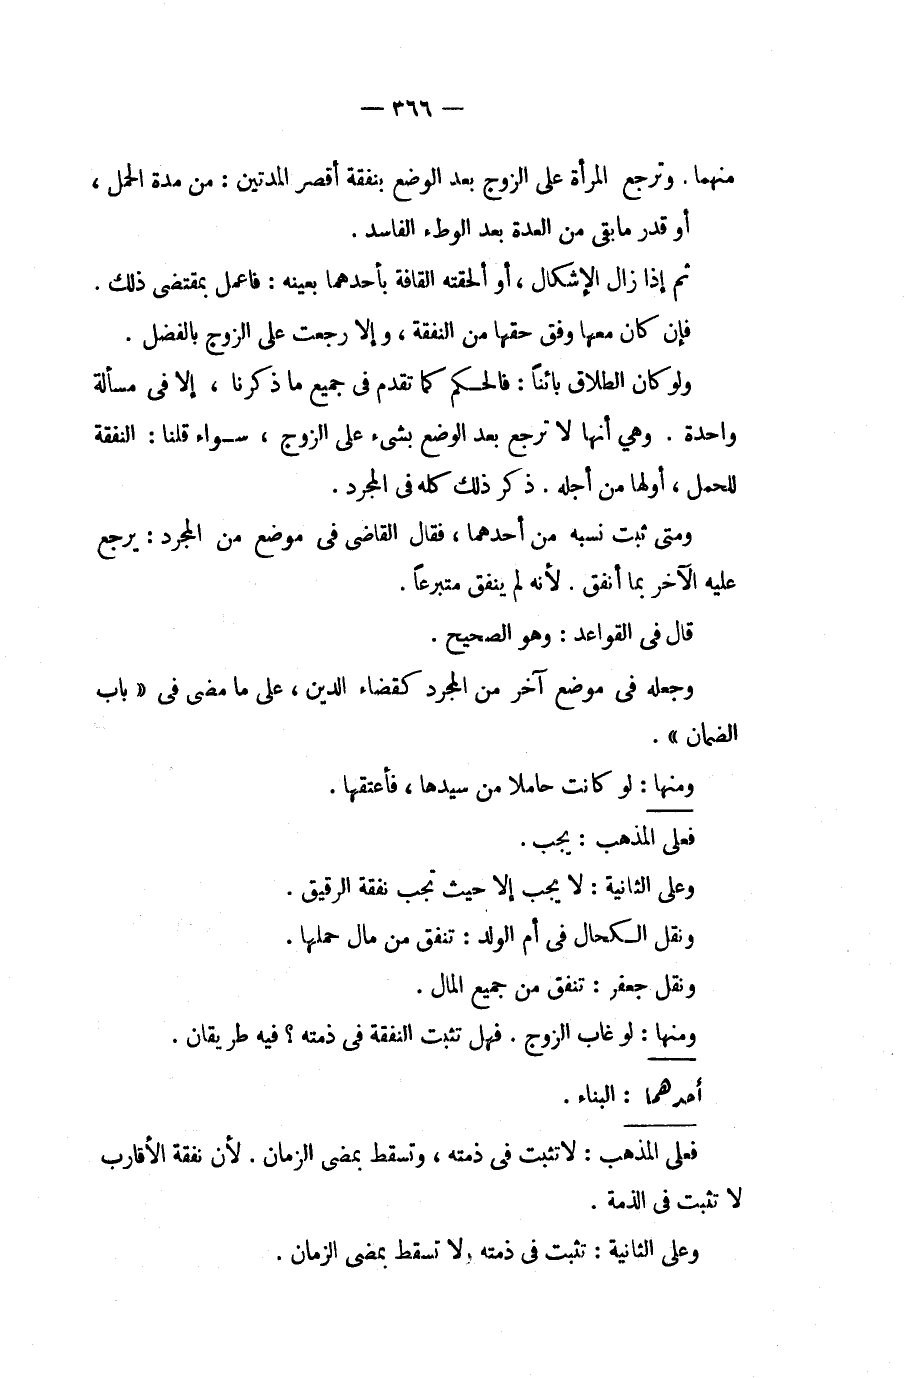 — ٣٦٦ —
منهما . وترجع المرأة على الزوج بعد الوضع بنفقة أقصر المدتين : من مدة الحمل ،
أو قدر مابقى من العدة بعد الوطء الفاسد .
ثم إذا زال الإشكال ، أو ألحقته القافة بأحدهما بعينه : فاعمل بمقتضى ذلك .
فإن كان معها وفق حقها من النفقة ، وإلا رجعت على الزوج بالفضل .
ولو كان الطلاق بائناً : فالحكم كما تقدم فى جميع ما ذكرنا ، إلا فى مسألة
واحدة . وهي أنها لا ترجع بعد الوضع بشىء على الزوج ، سواء قلنا : النفقة
للحمل ، أولها من أجله . ذكر ذلك كله فى المجرد .
ومتى ثبت نسبه من أحدهما ، فقال القاضى فى موضع من المجرد : يرجع
عليه الآخر بما أنفق . لأنه لم ينفق متبرعاً .
قال فى القواعد : وهو الصحيح .
وجعله فى موضع آخر من المجرد كقضاء الدين ، على ما مضى فى « باب
الضمان » .
ومنها : لو كانت حاملا من سيدها ، فأعتقها .
فعلى المذهب : يجب .
وعلى الثانية : لا يجب إلا حيث تجب نفقة الرقيق .
ونقل الكحال فى أم الولد : تنفق من مال حملها .
ونقل جعفر : تنفق من جميع المال .
ومنها : لو غاب الزوج . فهل تثبت النفقة فى ذمته ؟ فيه طريقان .
أحدهما : البناء .
فعلى المذهب : لاتثبت فى ذمته ، وتسقط بمضى الزمان . لأن نفقة الأقارب
لا تثبت فى الذمة .
وعلى الثانية : تثبت فى ذمته ولا تسقط بمضى الزمان .